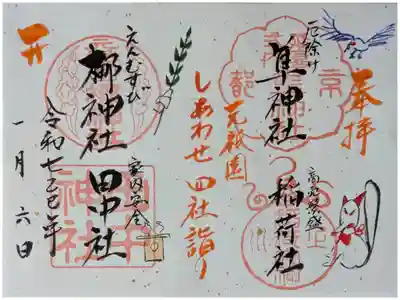 奉拝
厄除け
隼神社
商売繁盛
稲荷社
元祇園
しあわせ四社詣り
えんむすび
梛神社
家内安全
田中社
令和七乙巳年
一月六日
京
都
神社